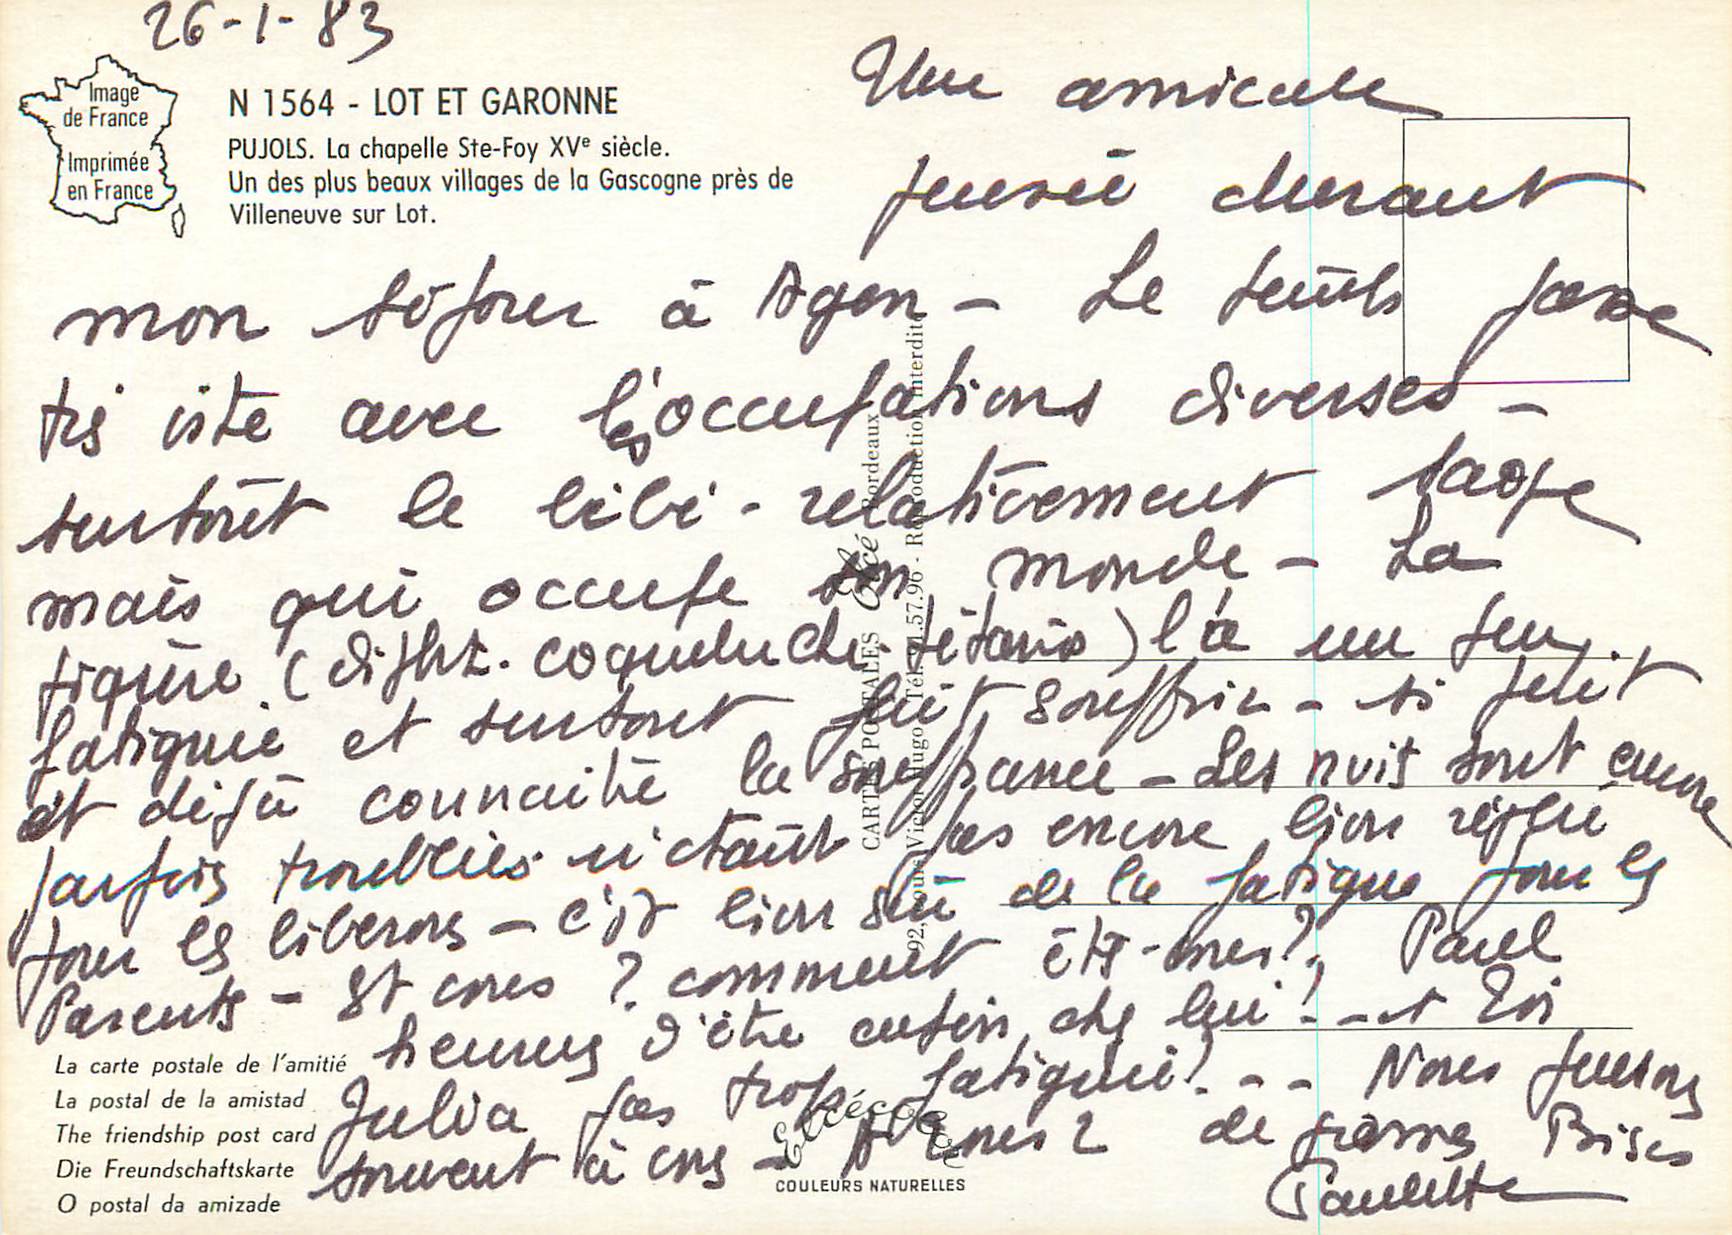 26-1-83
Image
de France
Imprimée
en France
N 1564 - LOT ET GARONNE
PUJOLS. La chapelle Ste-Foy XVe siècle.
Un des plus beaux villages de la Gascogne près de
Villeneuve sur Lot.
Une amicale
pensée durant
mon séjour à Agen - Le temps passe
très vite avec les occupations diverses -
surtout le bébé - relativement sage
mais qui occupe son monde - La
piqûre (dipht. coqueluche. tétanos) l'a un peu
fatiguée et surtout fait souffrir - si petit
et déjà connaître la souffrance - Les nuits sont encore
parfois troublées n'étant pas encore bien réglé
pour les biberons - c'est bien sûr de la fatigue pour les
Parents - Et vous ? comment êtes-vous ?, Paul
heureux d'être enfin chez lui ! - - et Toi
Julia pas trop fatiguée ! - - Nous pensons
souvent à vous - A vous 2 de grosses Bises
Paulette
CARTES POSTALES Elcé Bordeaux
92, cours Victor Hugo Tél. 91.57.96 - Reproduction interdite
La carte postale de l'amitié
La postal de la amistad
The friendship post card
Die Freundschaftskarte
O postal da amizade
COULEURS NATURELLES